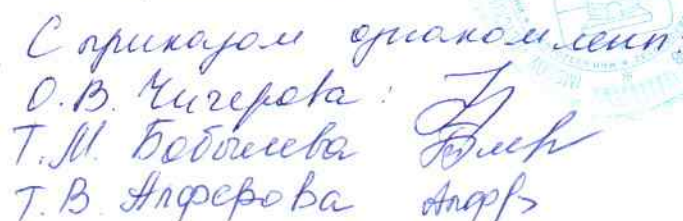 С приказом ознакомлены:
О.В. Чичерова:
Т.М. Бобылева
Т.В. Алферова